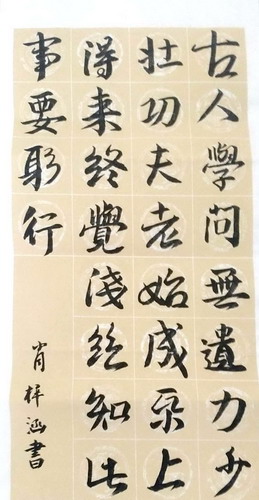 古人學問無遺力少
壯功夫老始成紙上
得来終覺淺絕知此
事要躬行
肖梓涵書